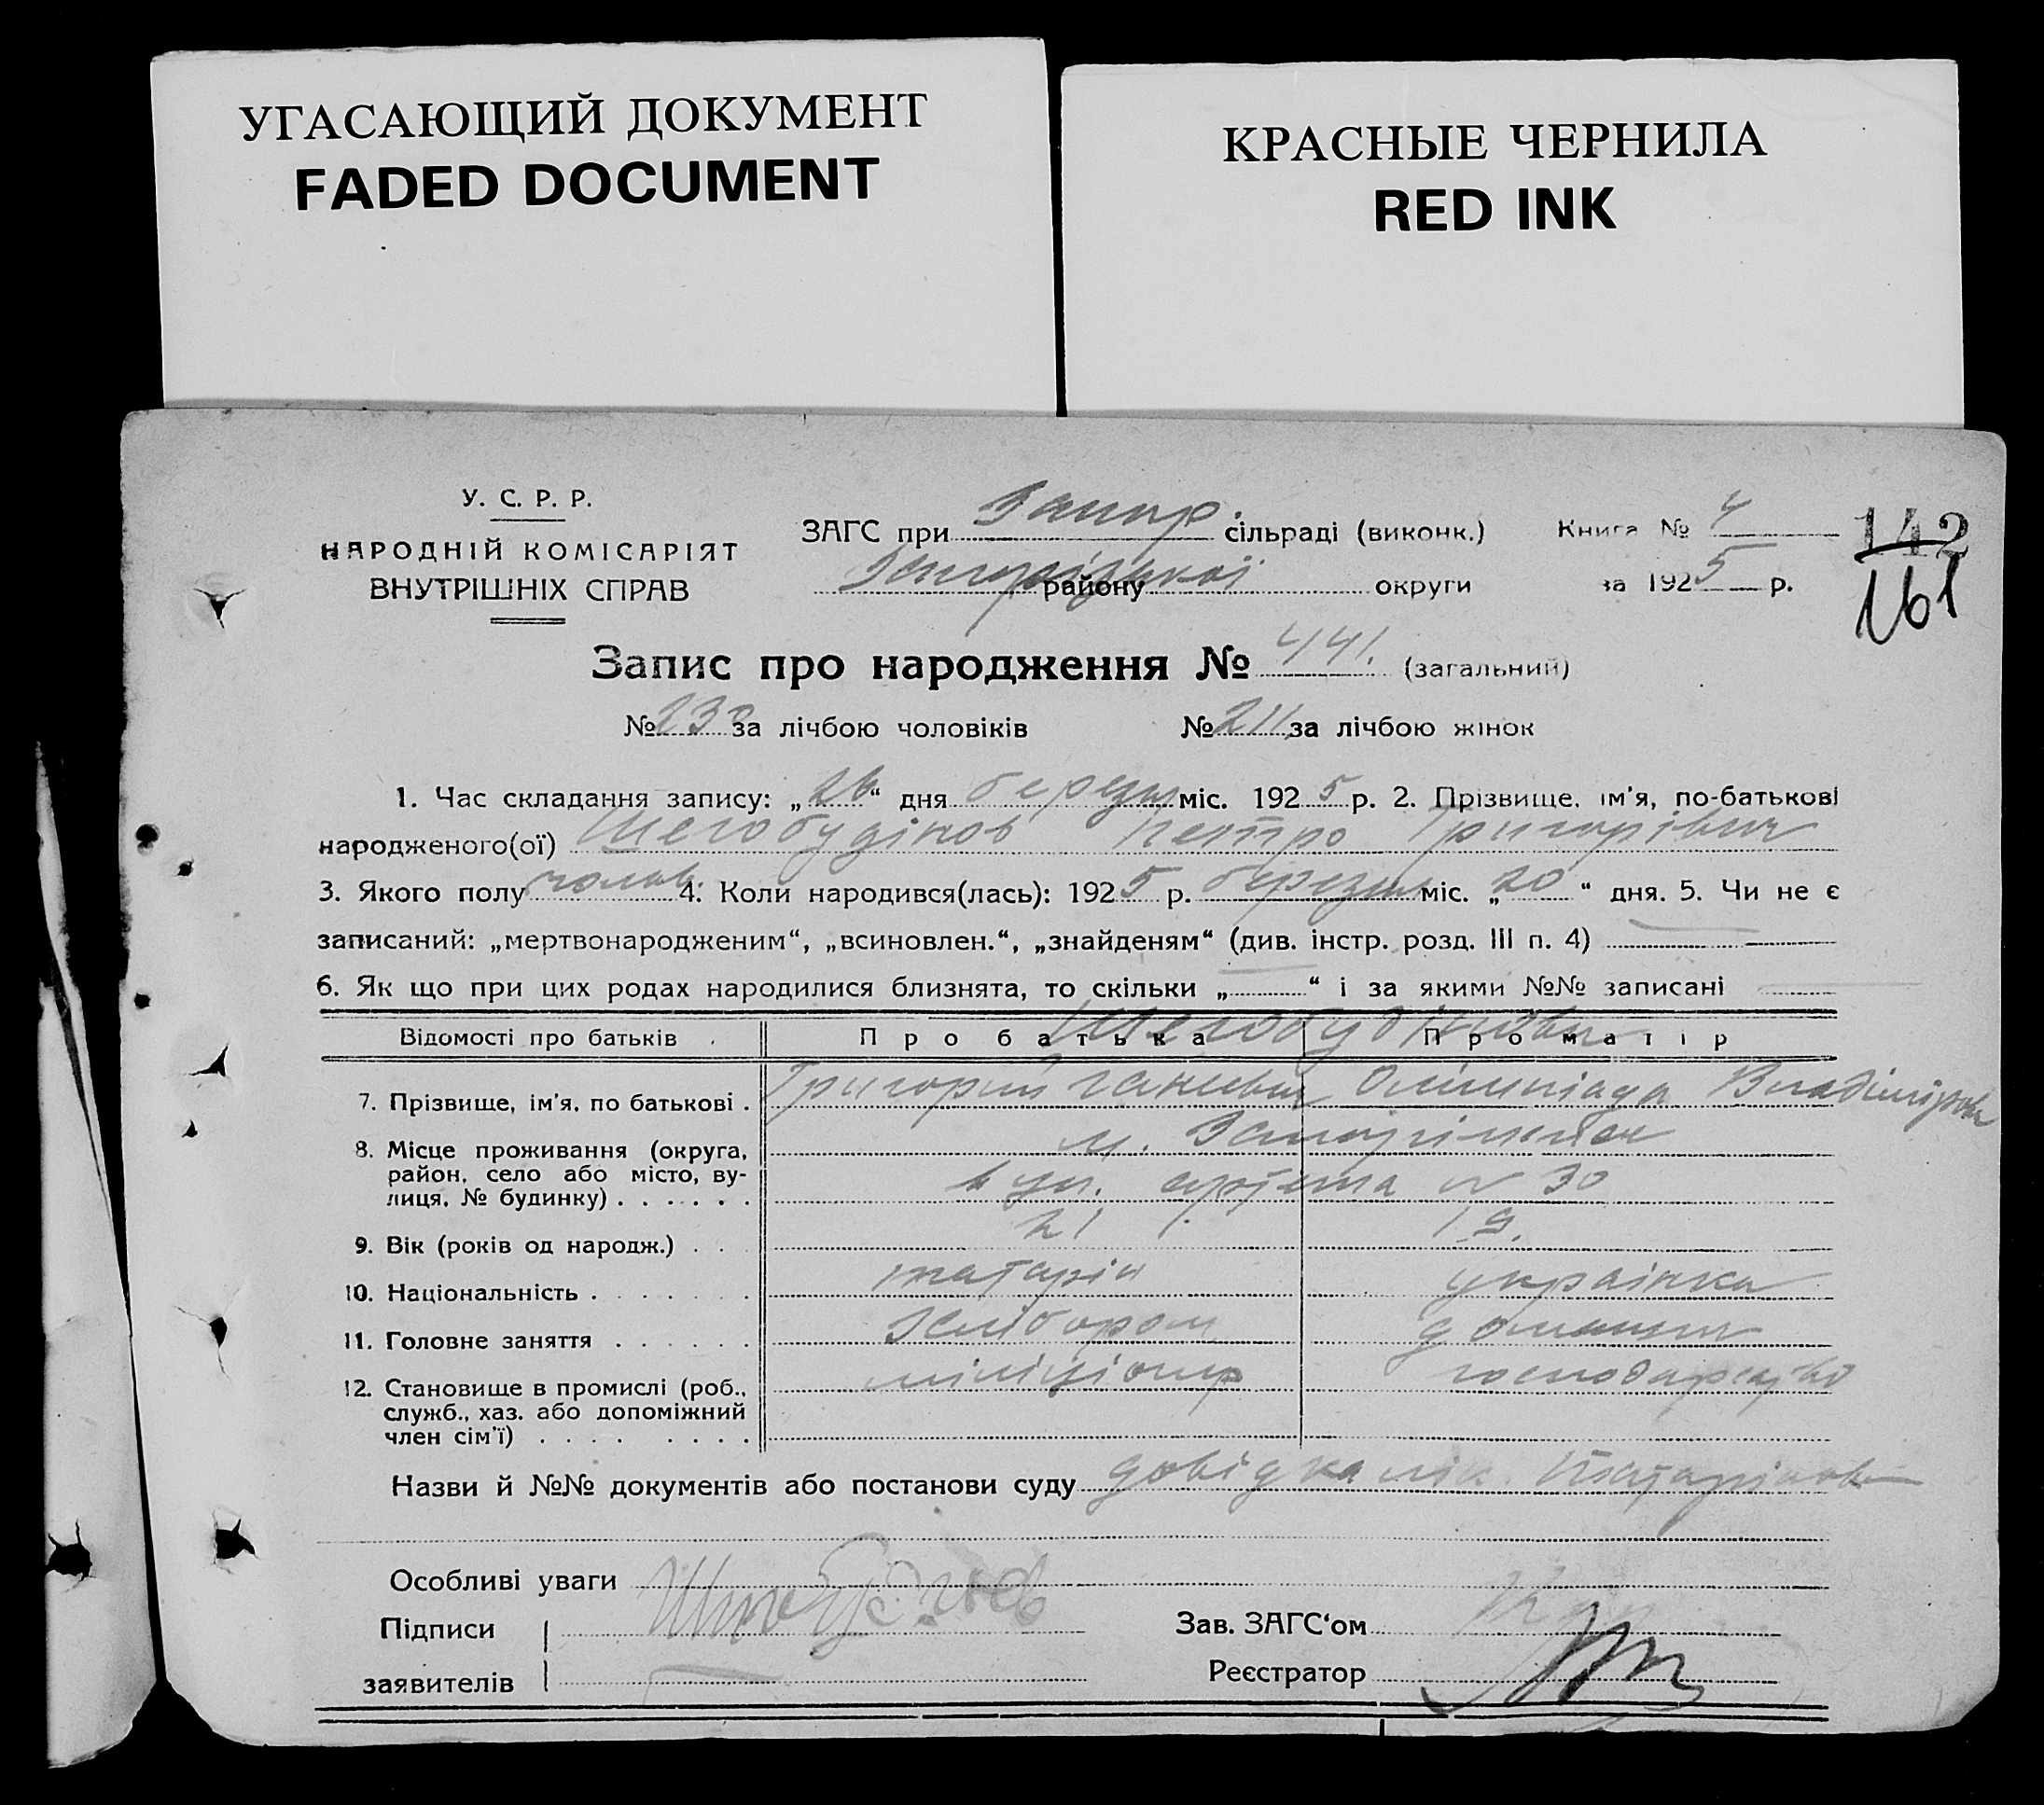 УГАСАЮЩИЙ ДОКУМЕНТ
FADED DOCUMENT
КРАСНЫЕ ЧЕРНИЛА
RED INK
У. С. Р. Р.
НАРОДНІЙ КОМІСАРІЯТ
ВНУТРІШНІХ СПРАВ
ЗАГС при Запор. сільраді (виконк.)
району округи
Книга № 4
за 1925 р.
142
161
Запис про народження № 441. (загальний)
№ 230 за лічбою чоловіків № 211 за лічбою жінок
1. Час складання запису: „26“ дня березня міс. 1925 р. 2. Прізвище, ім'я, по-батькові
народженого(ої) Шегобудінов Петро Григорівич
3. Якого полу чолов. 4. Коли народився(лась): 1925 р. березня міс. „20“ дня. 5. Чи не є
записаний: „мертвонародженим“, „всиновлен.“, „знайденям“ (див. інстр. розд. III п. 4)
6. Як що при цих родах народилися близнята, то скільки „ “ і за якими №№ записані
Відомості про батьків Про батька Про матір
Шегобудінови
7. Прізвище, ім'я, по батькові . Григорий Олімпіада Владімірівна
8. Місце проживання (округа, район, село або місто, вулиця, № будинку) . . . . . . м. Запоріжжя
вул. Артема № 30
9. Вік (років од народж.) . . 21 19.
10. Національність . . . . . . . татарін українка
11. Головне заняття . . . . . . домашнє
12. Становище в промислі (роб., служб., хаз. або допоміжний член сім'ї) . . . . . . . . міліціонер господарство
Назви й №№ документів або постанови суду довідка
Особливі уваги
Підписи
заявителів
Зав. ЗАГС'ом
Реєстратор